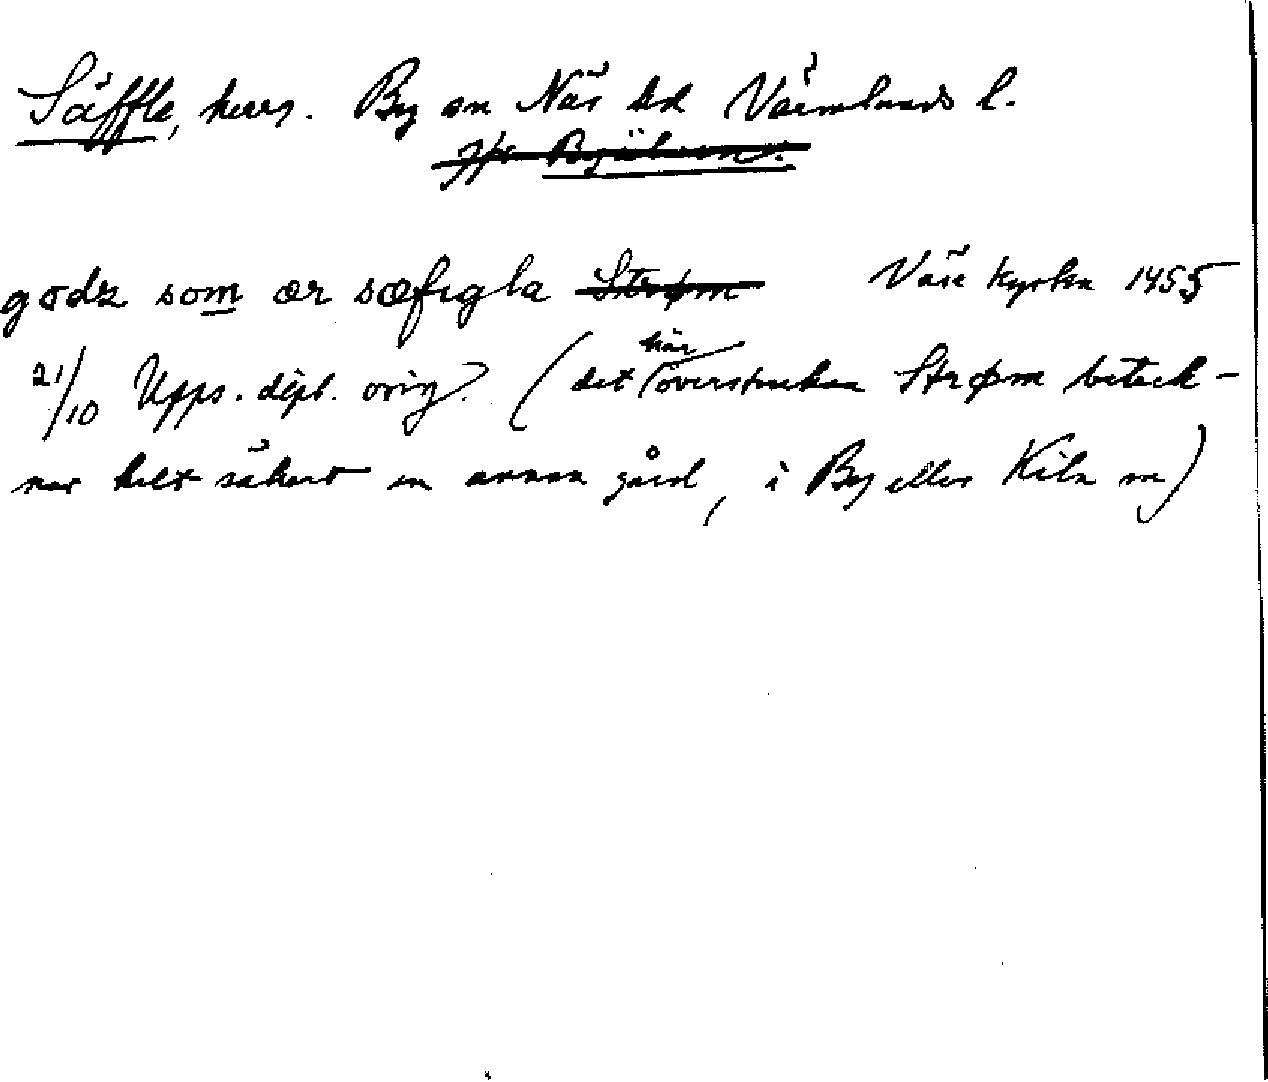 Säffle, herrg. By sn Näs hd Värmlands l.
Jfr Byälven.
godz som ær sæfigla Strøm Väse kyrka 1455
21/10 Upps. dipl. orig. (det här överstrukna Strøm beteck-
nar helt säkert en annan gård, i By eller Kila sn)